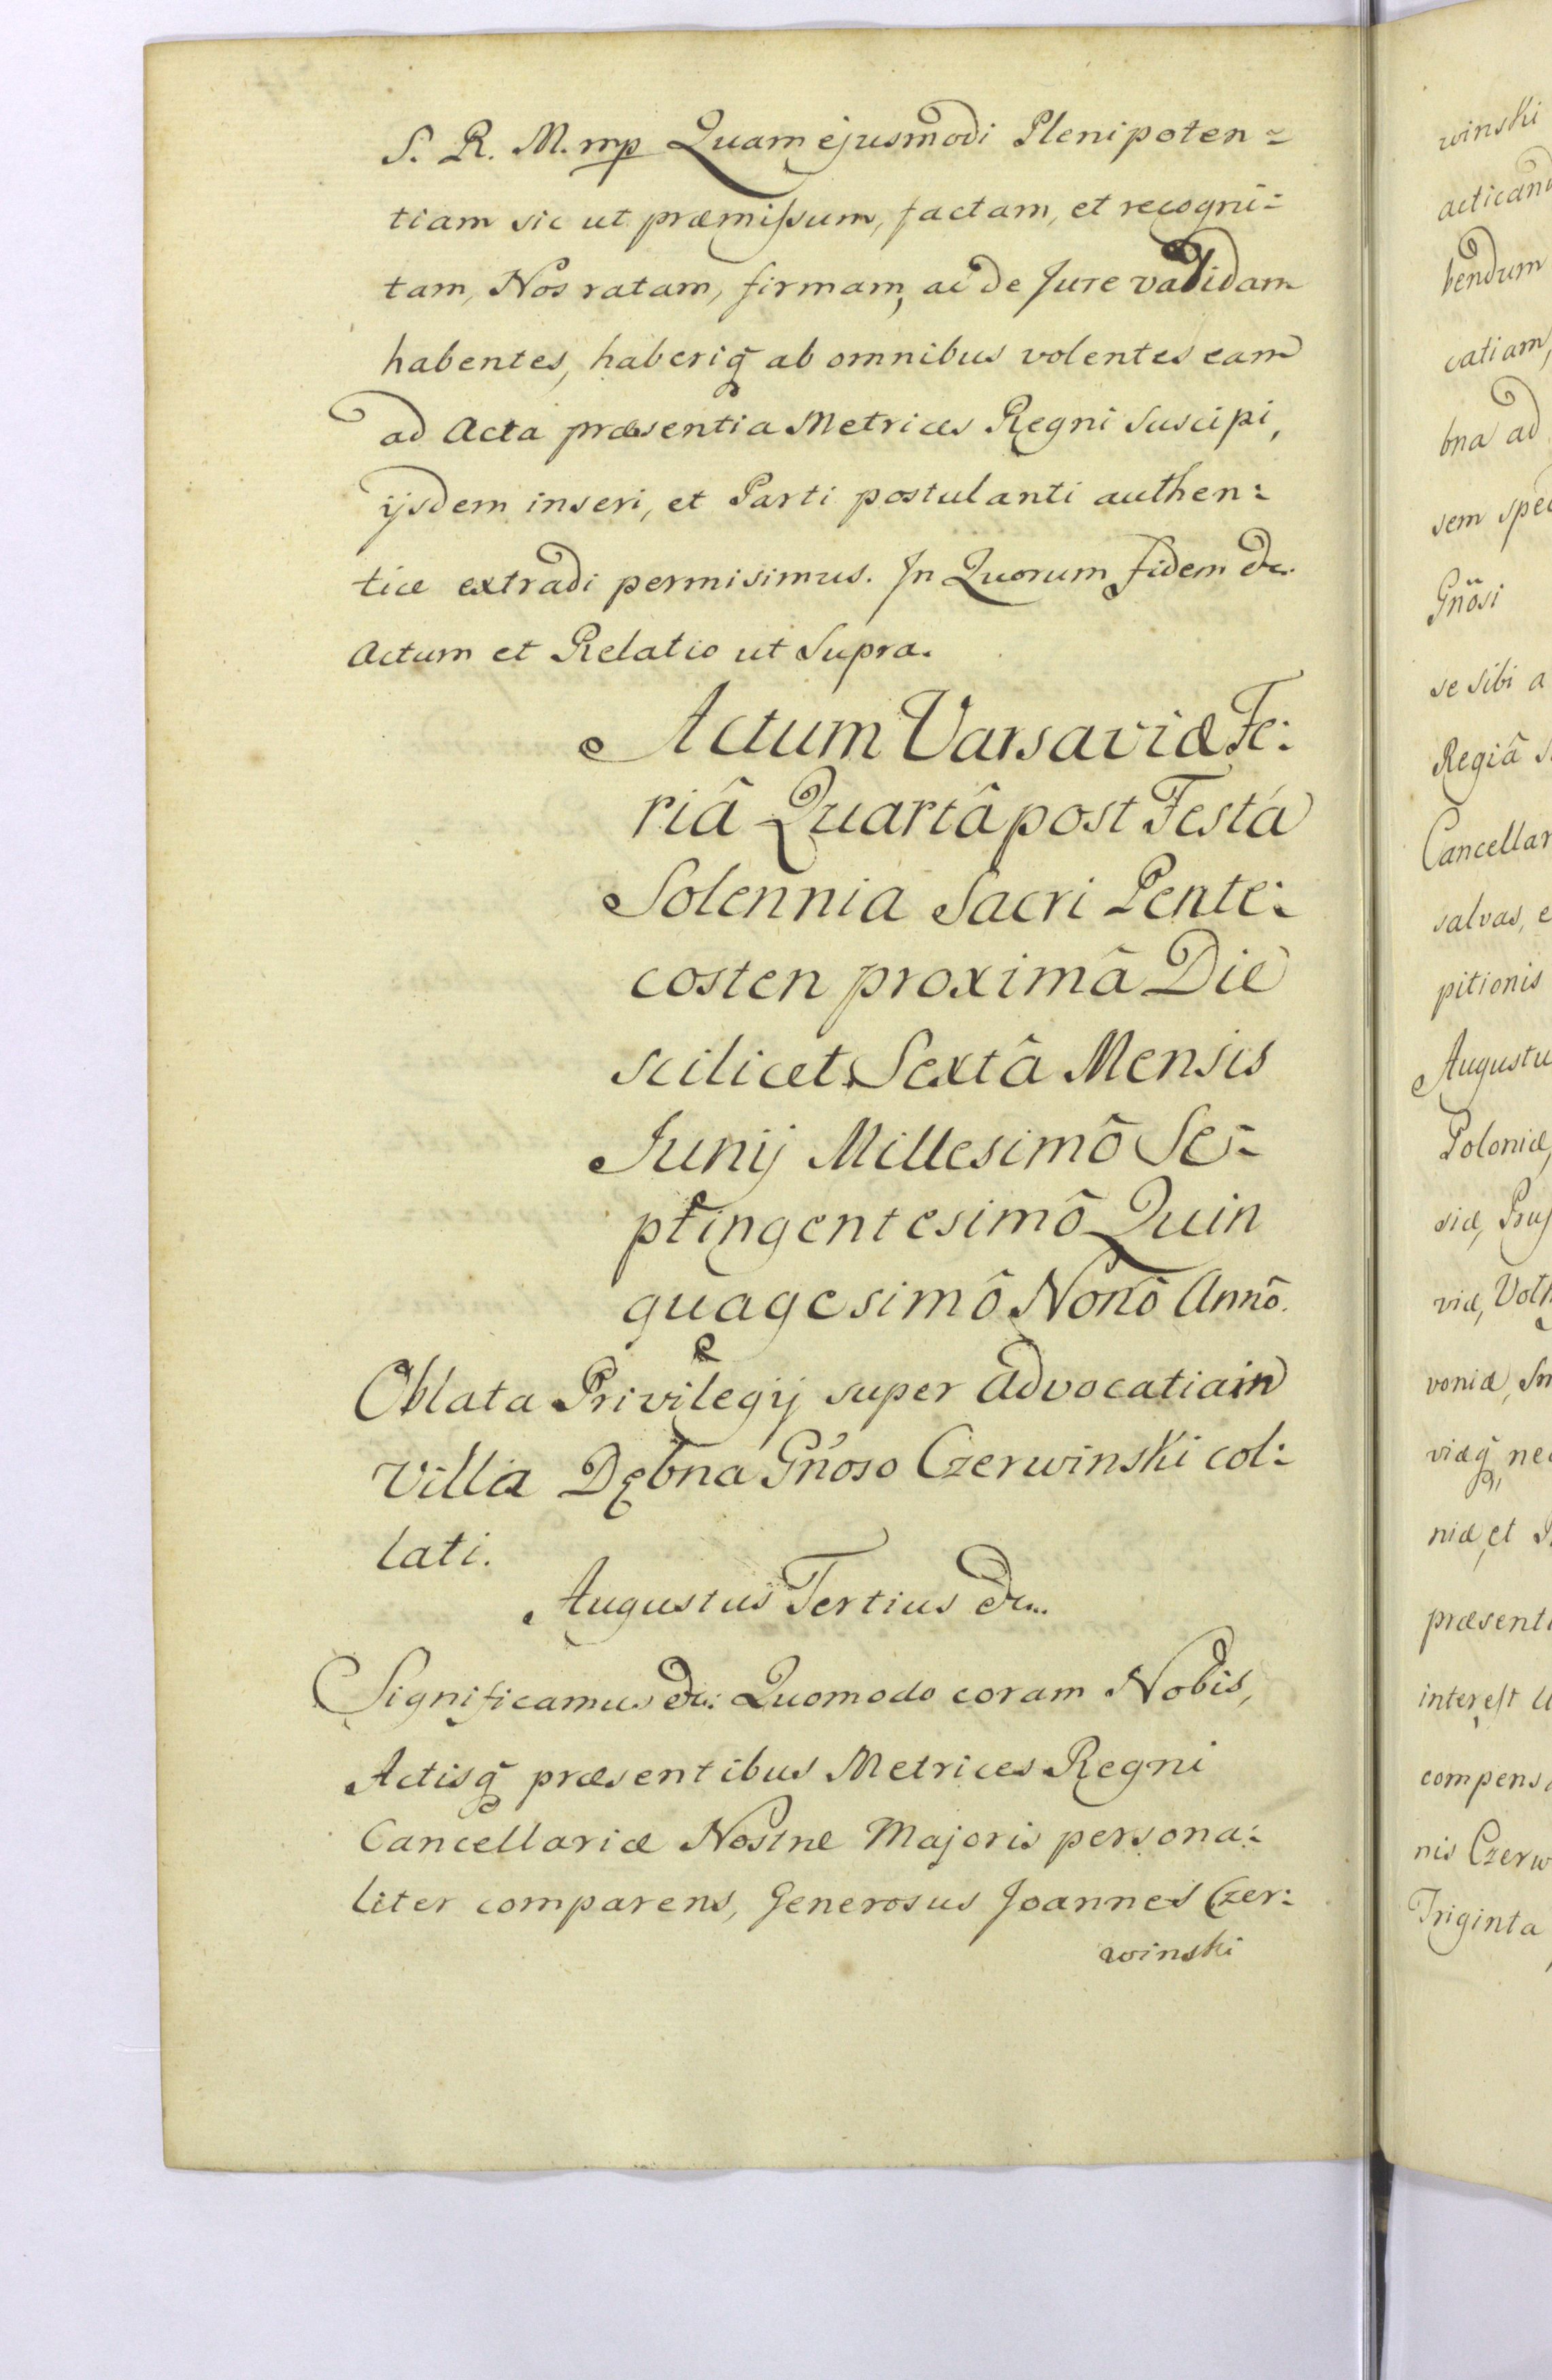 S. R. M. mp Quam ejusmodi Plenipoten=
tiam sic ut præmissum, factam, et recogni=
tam, Nos ratam, firmam, ac de Jure validam
habentes, haberiq̃ ab omnibus volentes eam
ad Acta præsentia Metrices Regni suscipi,
ijsdem inseri, et Parti postulanti authen=
tice extradi permisimus. In Quorum fidem &c.
Actum et Relatio ut Supra.
Actum Varsaviæ Fe=
riâ Quartâ post Festa
Solennia Sacri Pente=
costen proximâ Die
scilicet Sextâ Mensis
Junij Millesimô Se=
ptingentesimô Quin
quagesimô Nonô Annô.
Oblata Privilegij super Advocatiam
Villæ Dębna Gñoso Czerwinski col=
lati.
Augustus Tertius &c..
Significamus &c: Quomodo coram Nobis,
Actisq̃ præsentibus Metrices Regni
Cancellariæ Nostræ Majoris persona=
liter comparens, Generosus Joannes Czer=
winski
winski
acticand
bendum
catiam,
bna ad
sem spec
Gñosi
se sibi a
Regiâ S
Cancellar
salvas, e
pitionis
Augustu
Poloniæ,
siæ, Prus
viæ, Volh
voniæ, Sm
viæq̃, nec
niæ, et
præsenti
interest
compens
nis Czerw
Triginta